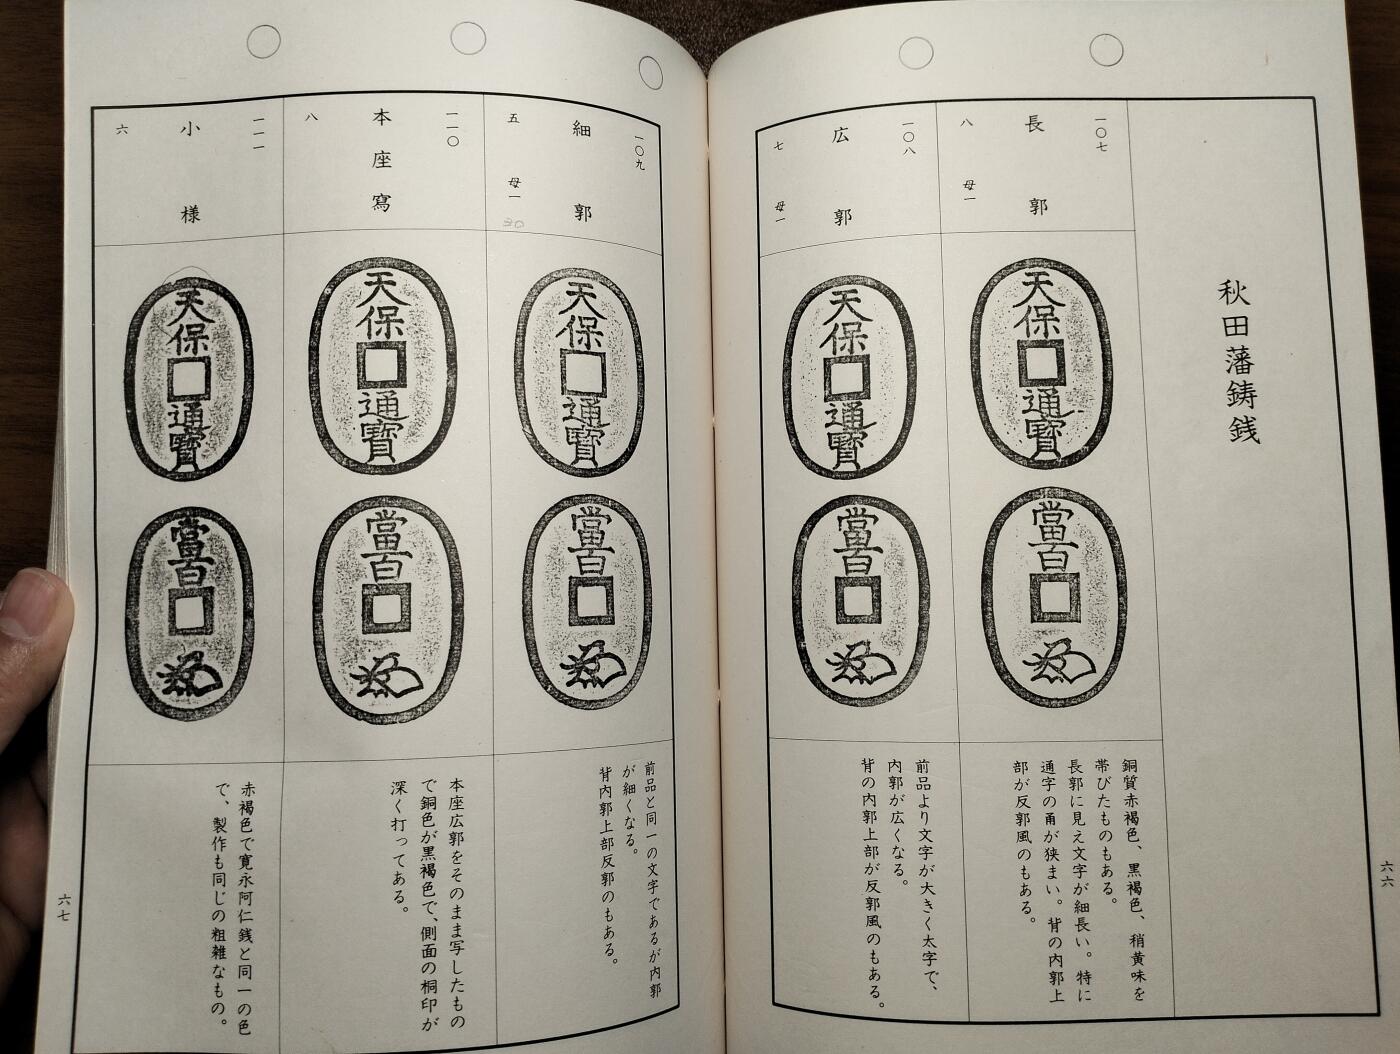 秋田藩鋳銭
一〇七
長郭
八 母一
天保通寳
當百
銅質赤褐色、黒褐色、稍黄味を
帯びたものもある。
長郭に見え文字が細長い。特に
通字の甬が狭まい。背の内郭上
部が反郭風のもある。
一〇八
広郭
七 母一
天保通寳
當百
前品より文字が大きく太字で、
内郭が広くなる。
背の内郭上部が反郭風のもある。
六六
一〇九
細郭
五 母一
30
天保通寳
當百
前品と同一の文字であるが内郭
が細くなる。
背内郭上部反郭のもある。
一一〇
本座寫
八
天保通寳
當百
本座広郭をそのまま写したもの
で銅色が黒褐色で、側面の桐印が
深く打ってある。
一一一
小様
六
天保通寳
當百
赤褐色で寛永阿仁銭と同一の色
で、製作も同じの粗雑なもの。
六七